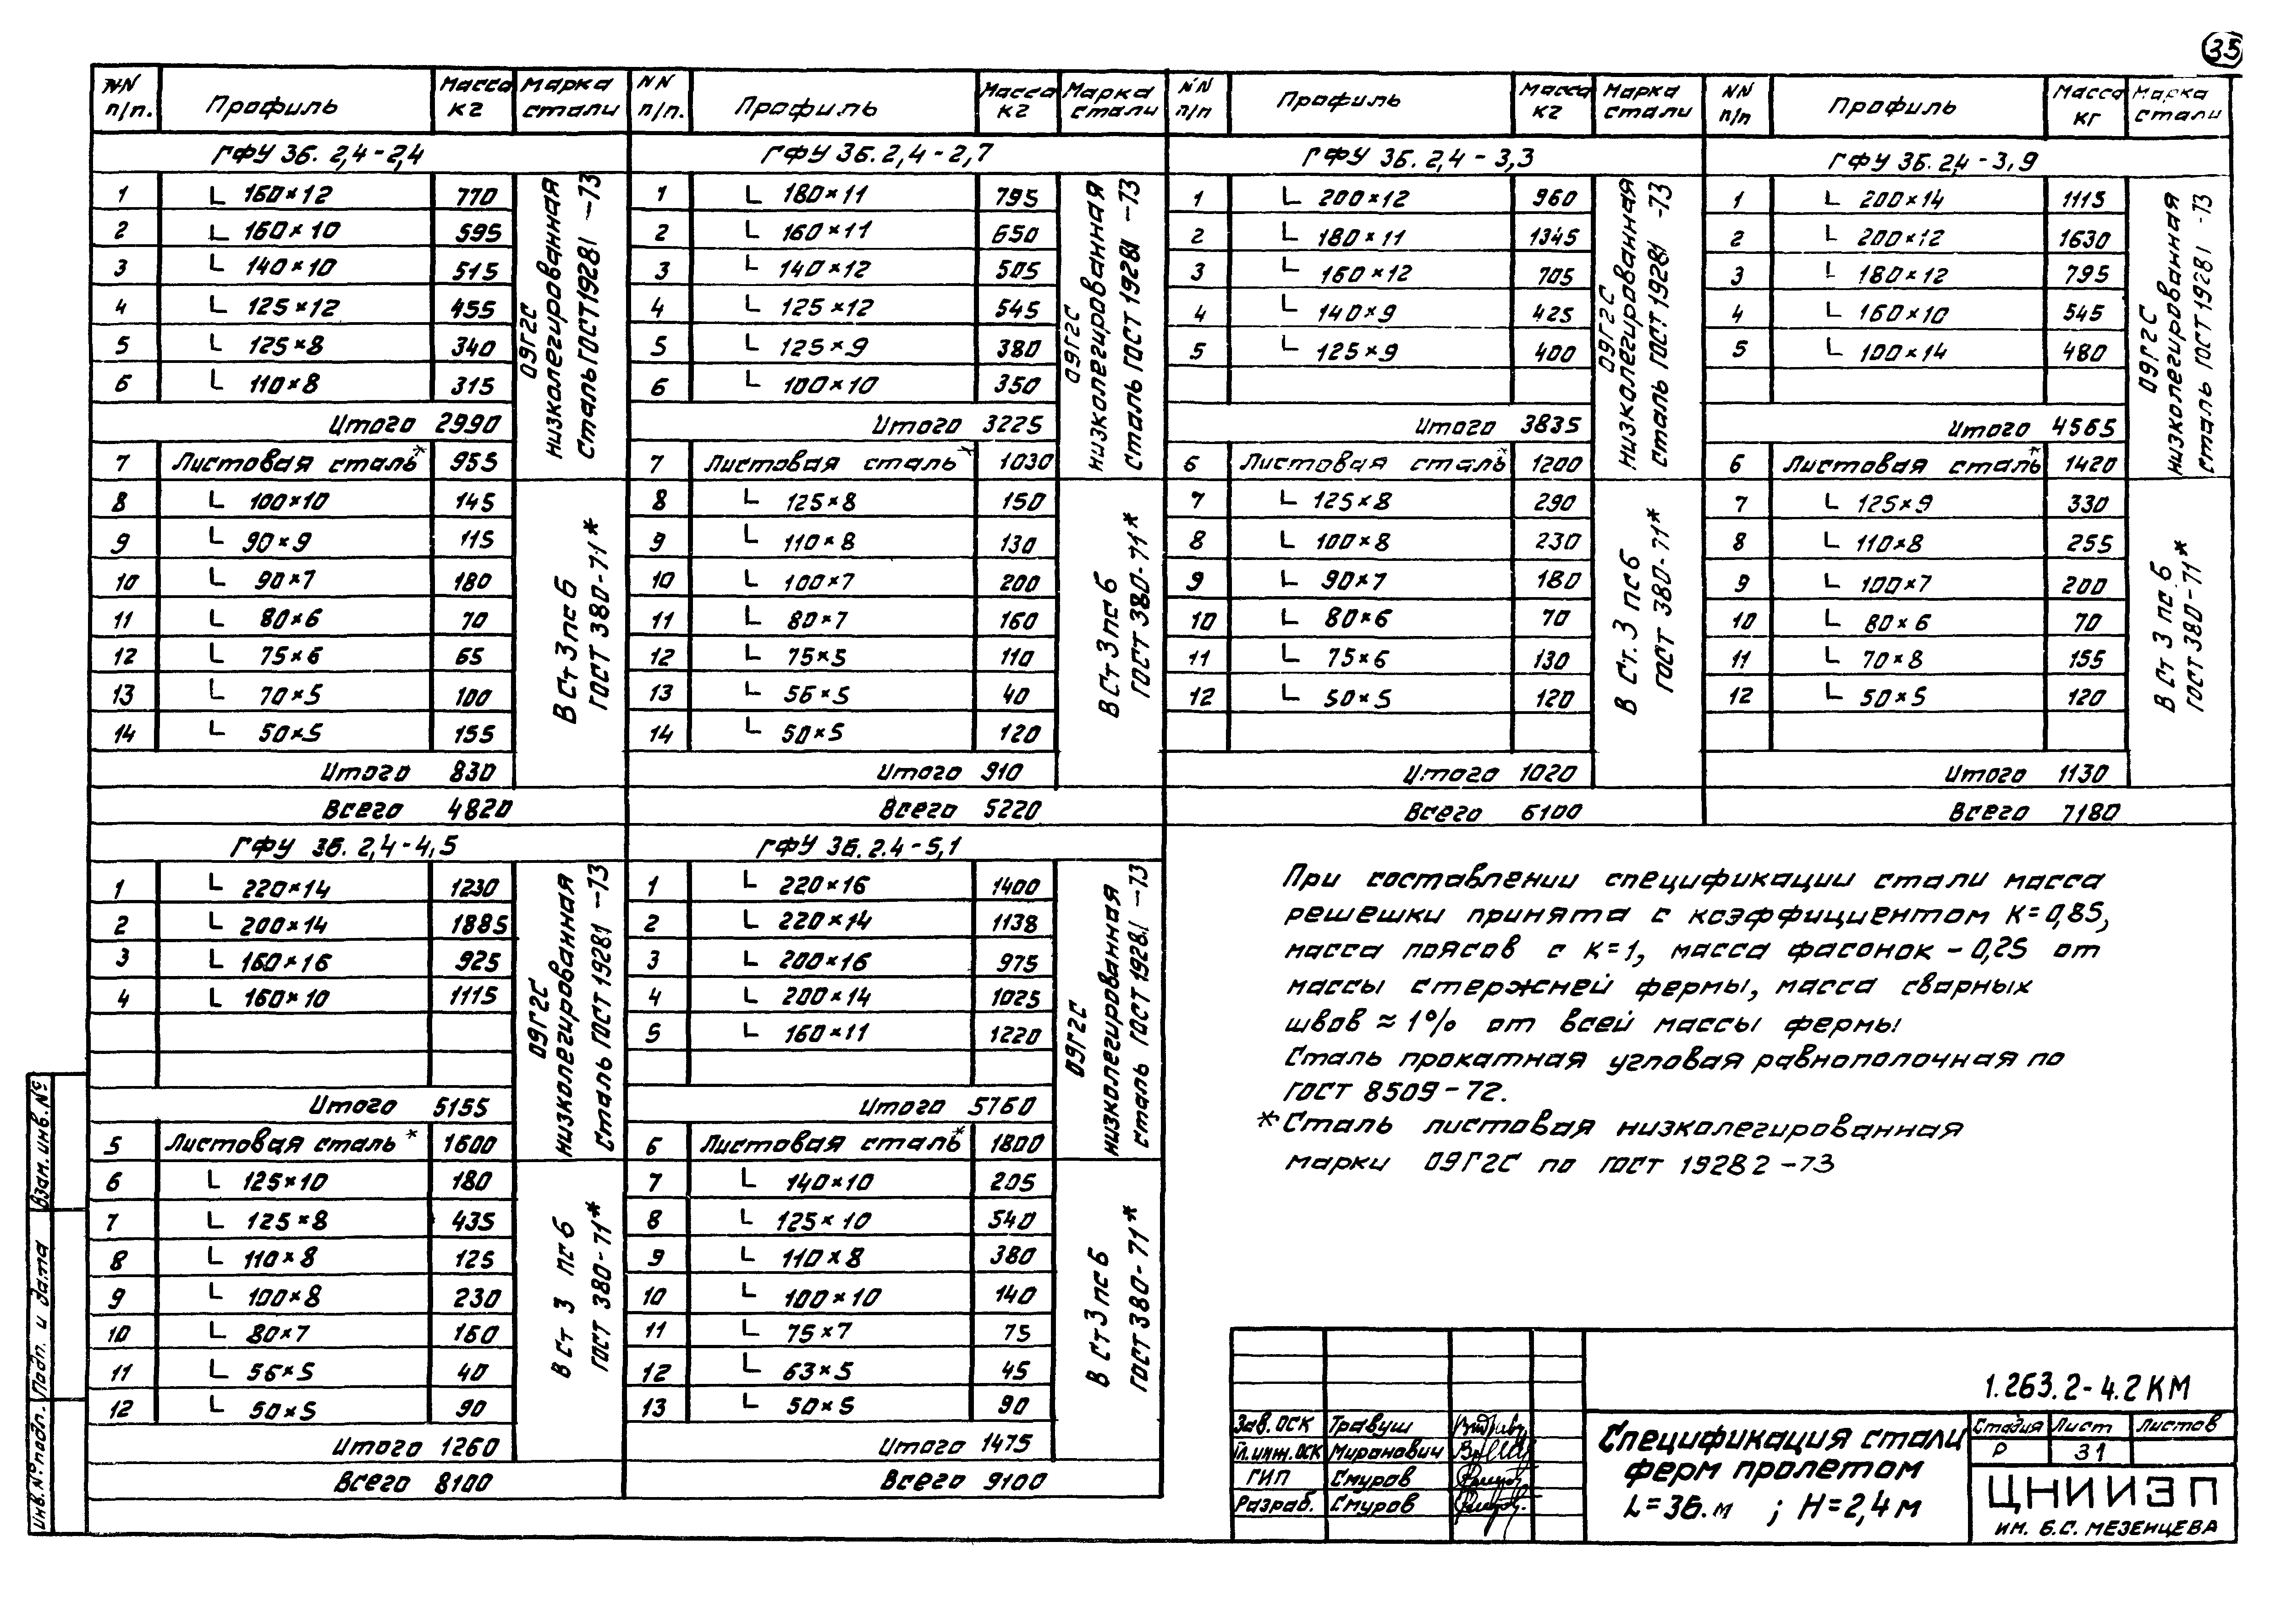 35
NN п/п. Профиль Масса кг Марка стали NN п/п. Профиль Масса кг Марка стали NN п/п Профиль Масса кг Марка стали NN п/п Профиль Масса кг Марка стали
ГФУ 36. 2,4-2,4
1 L 160×12 770
2 L 160×10 595
3 L 140×10 515
4 L 125×12 455
5 L 125×8 340
6 L 110×8 315
Итого 2990
7 Листовая сталь* 955
09Г2С низколегированная сталь ГОСТ 19281-73
8 L 100×10 145
9 L 90×9 115
10 L 90×7 180
11 L 80×6 70
12 L 75×6 65
13 L 70×5 100
14 L 50×5 155
Итого 830
В Ст 3 пс 6 ГОСТ 380-71*
Всего 4820
ГФУ 36. 2,4-2,7
1 L 180×11 795
2 L 160×11 650
3 L 140×12 505
4 L 125×12 545
5 L 125×9 380
6 L 100×10 350
Итого 3225
7 Листовая сталь* 1030
09Г2С низколегированная сталь ГОСТ 19281-73
8 L 125×8 150
9 L 110×8 130
10 L 100×7 200
11 L 80×7 160
12 L 75×5 110
13 L 56×5 40
14 L 50×5 120
Итого 910
В Ст 3 пс 6 ГОСТ 380-71*
Всего 5220
ГФУ 36. 2,4-3,3
1 L 200×12 960
2 L 180×11 1345
3 L 160×12 705
4 L 140×9 425
5 L 125×9 400
Итого 3835
6 Листовая сталь* 1200
09Г2С низколегированная сталь ГОСТ 19281-73
7 L 125×8 290
8 L 100×8 230
9 L 90×7 180
10 L 80×6 70
11 L 75×6 130
12 L 50×5 120
Итого 1020
В Ст. 3 пс 6 ГОСТ 380-71*
Всего 6100
ГФУ 36. 2,4-3,9
1 L 200×14 1115
2 L 200×12 1630
3 L 180×12 795
4 L 160×10 545
5 L 100×14 480
Итого 4565
6 Листовая сталь* 1420
09Г2С низколегированная сталь ГОСТ 19281-73
7 L 125×9 330
8 L 110×8 255
9 L 100×7 200
10 L 80×6 70
11 L 70×8 155
12 L 50×5 120
Итого 1130
В Ст 3 пс 6 ГОСТ 380-71*
Всего 7180
ГФУ 36. 2,4-4,5
1 L 220×14 1230
2 L 200×14 1885
3 L 160×16 925
4 L 160×10 1115
Итого 5155
5 Листовая сталь* 1600
09Г2С низколегированная сталь ГОСТ 19281-73
6 L 125×10 180
7 L 125×8 435
8 L 110×8 125
9 L 100×8 230
10 L 80×7 160
11 L 56×5 40
12 L 50×5 90
Итого 1260
В Ст 3 пс 6 ГОСТ 380-71*
Всего 8100
ГФУ 36. 2.4-5,1
1 L 220×16 1400
2 L 220×14 1138
3 L 200×16 975
4 L 200×14 1025
5 L 160×11 1220
Итого 5760
6 Листовая сталь* 1800
09Г2С низколегированная сталь ГОСТ 19281-73
7 L 140×10 205
8 L 125×10 540
9 L 110×8 380
10 L 100×10 140
11 L 75×7 75
12 L 63×5 45
13 L 50×5 90
Итого 1475
В Ст 3 пс 6 ГОСТ 380-71*
Всего 9100
При составлении спецификации стали масса
решешки принята с коэффициентом К=0,85,
масса поясов с к=1, масса фасонок - 0,25 от
массы стержней фермы, масса сварных
швов ≈ 1% от всей массы фермы
Сталь прокатная угловая равнополочная по
ГОСТ 8509-72.
*Сталь листовая низколегированная
марки 09Г2С по ГОСТ 19282-73
1.263.2-4.2 КМ
Зав. ОСК Травуш
Гл. инж. ОСК Миранович
ГИП Смуров
Разраб. Смуров
Спецификация стали
ферм пролетом
L=36.м ; H=2,4 м
Стадия Лист Листов
Р 31
ЦНИИЭП
им. Б.С. МЕЗЕНЦЕВА
Инв. № подл. Подп. и дата Взам. инв. №